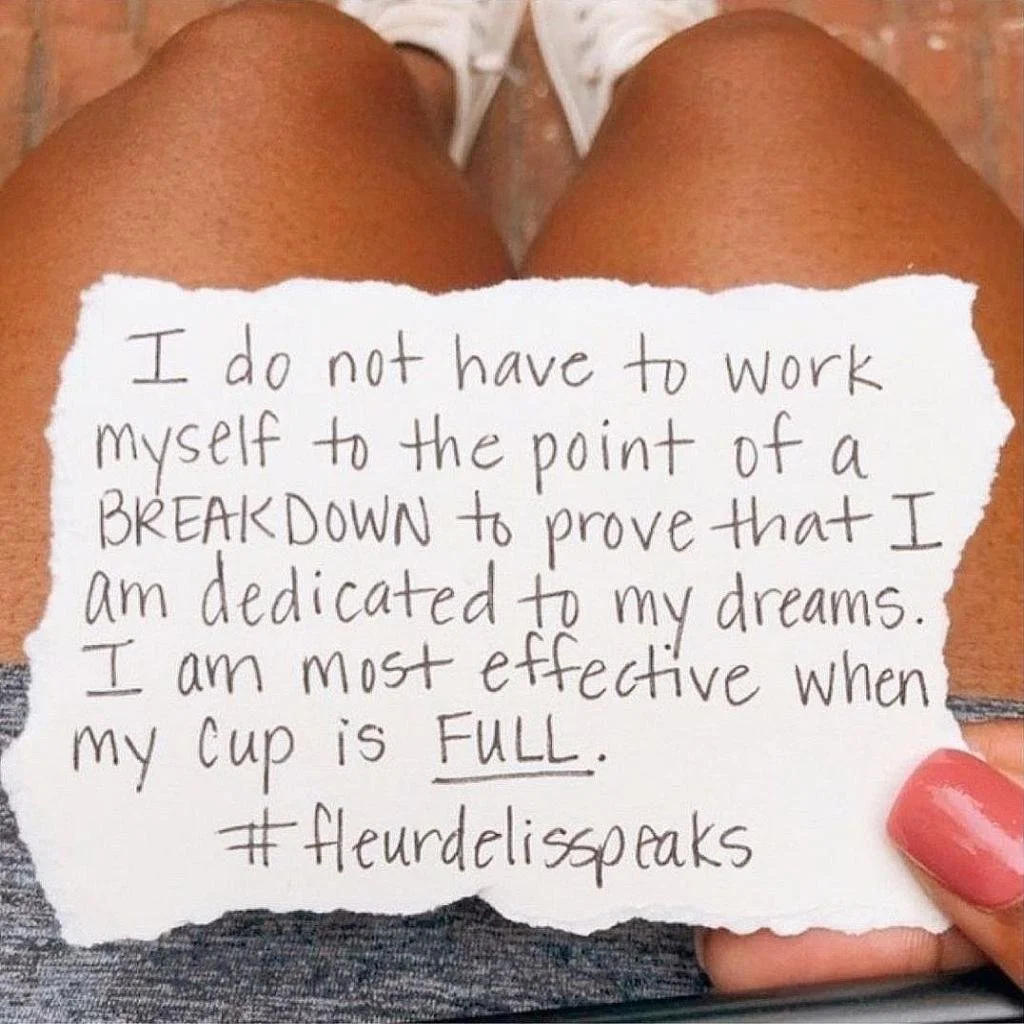 I do not have to work
myself to the point of a
BREAKDOWN to prove that I
am dedicated to my dreams.
I am most effective when
my cup is FULL.
#fleurdelisspeaks